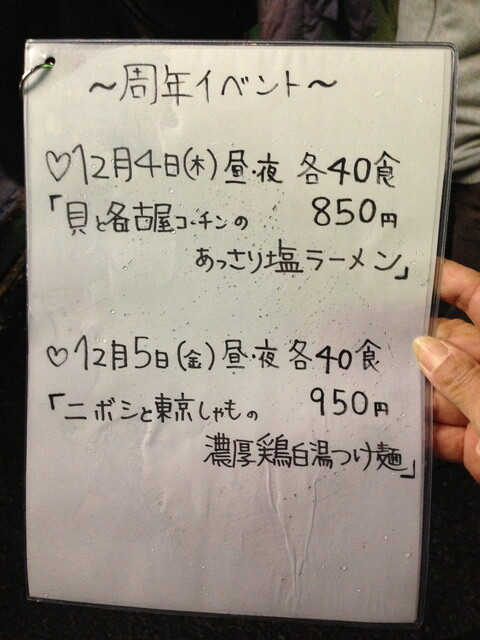 ～周年イベント～
♡12月4日(木)昼・夜 各40食
「貝と名古屋コーチンの 850円
あっさり塩ラーメン」
♡12月5日(金)昼・夜 各40食
「ニボシと東京しゃもの 950円
濃厚鶏白湯つけ麺」